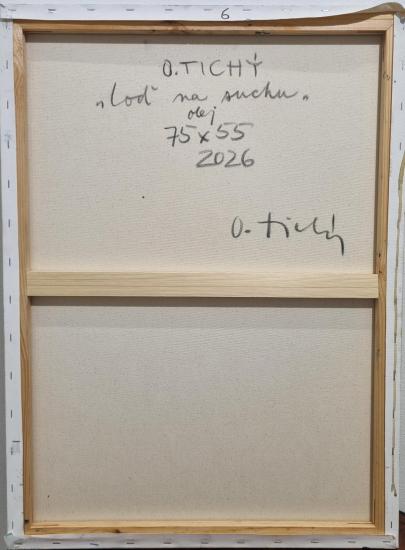 6
O. TICHÝ
„Loď na suchu„
olej
75x55
2026
O. Tichý